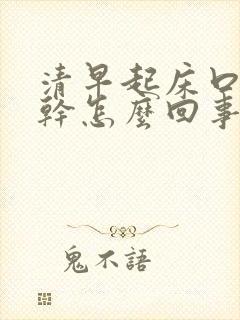 清早起床口
幹怎麼回事
鬼不語